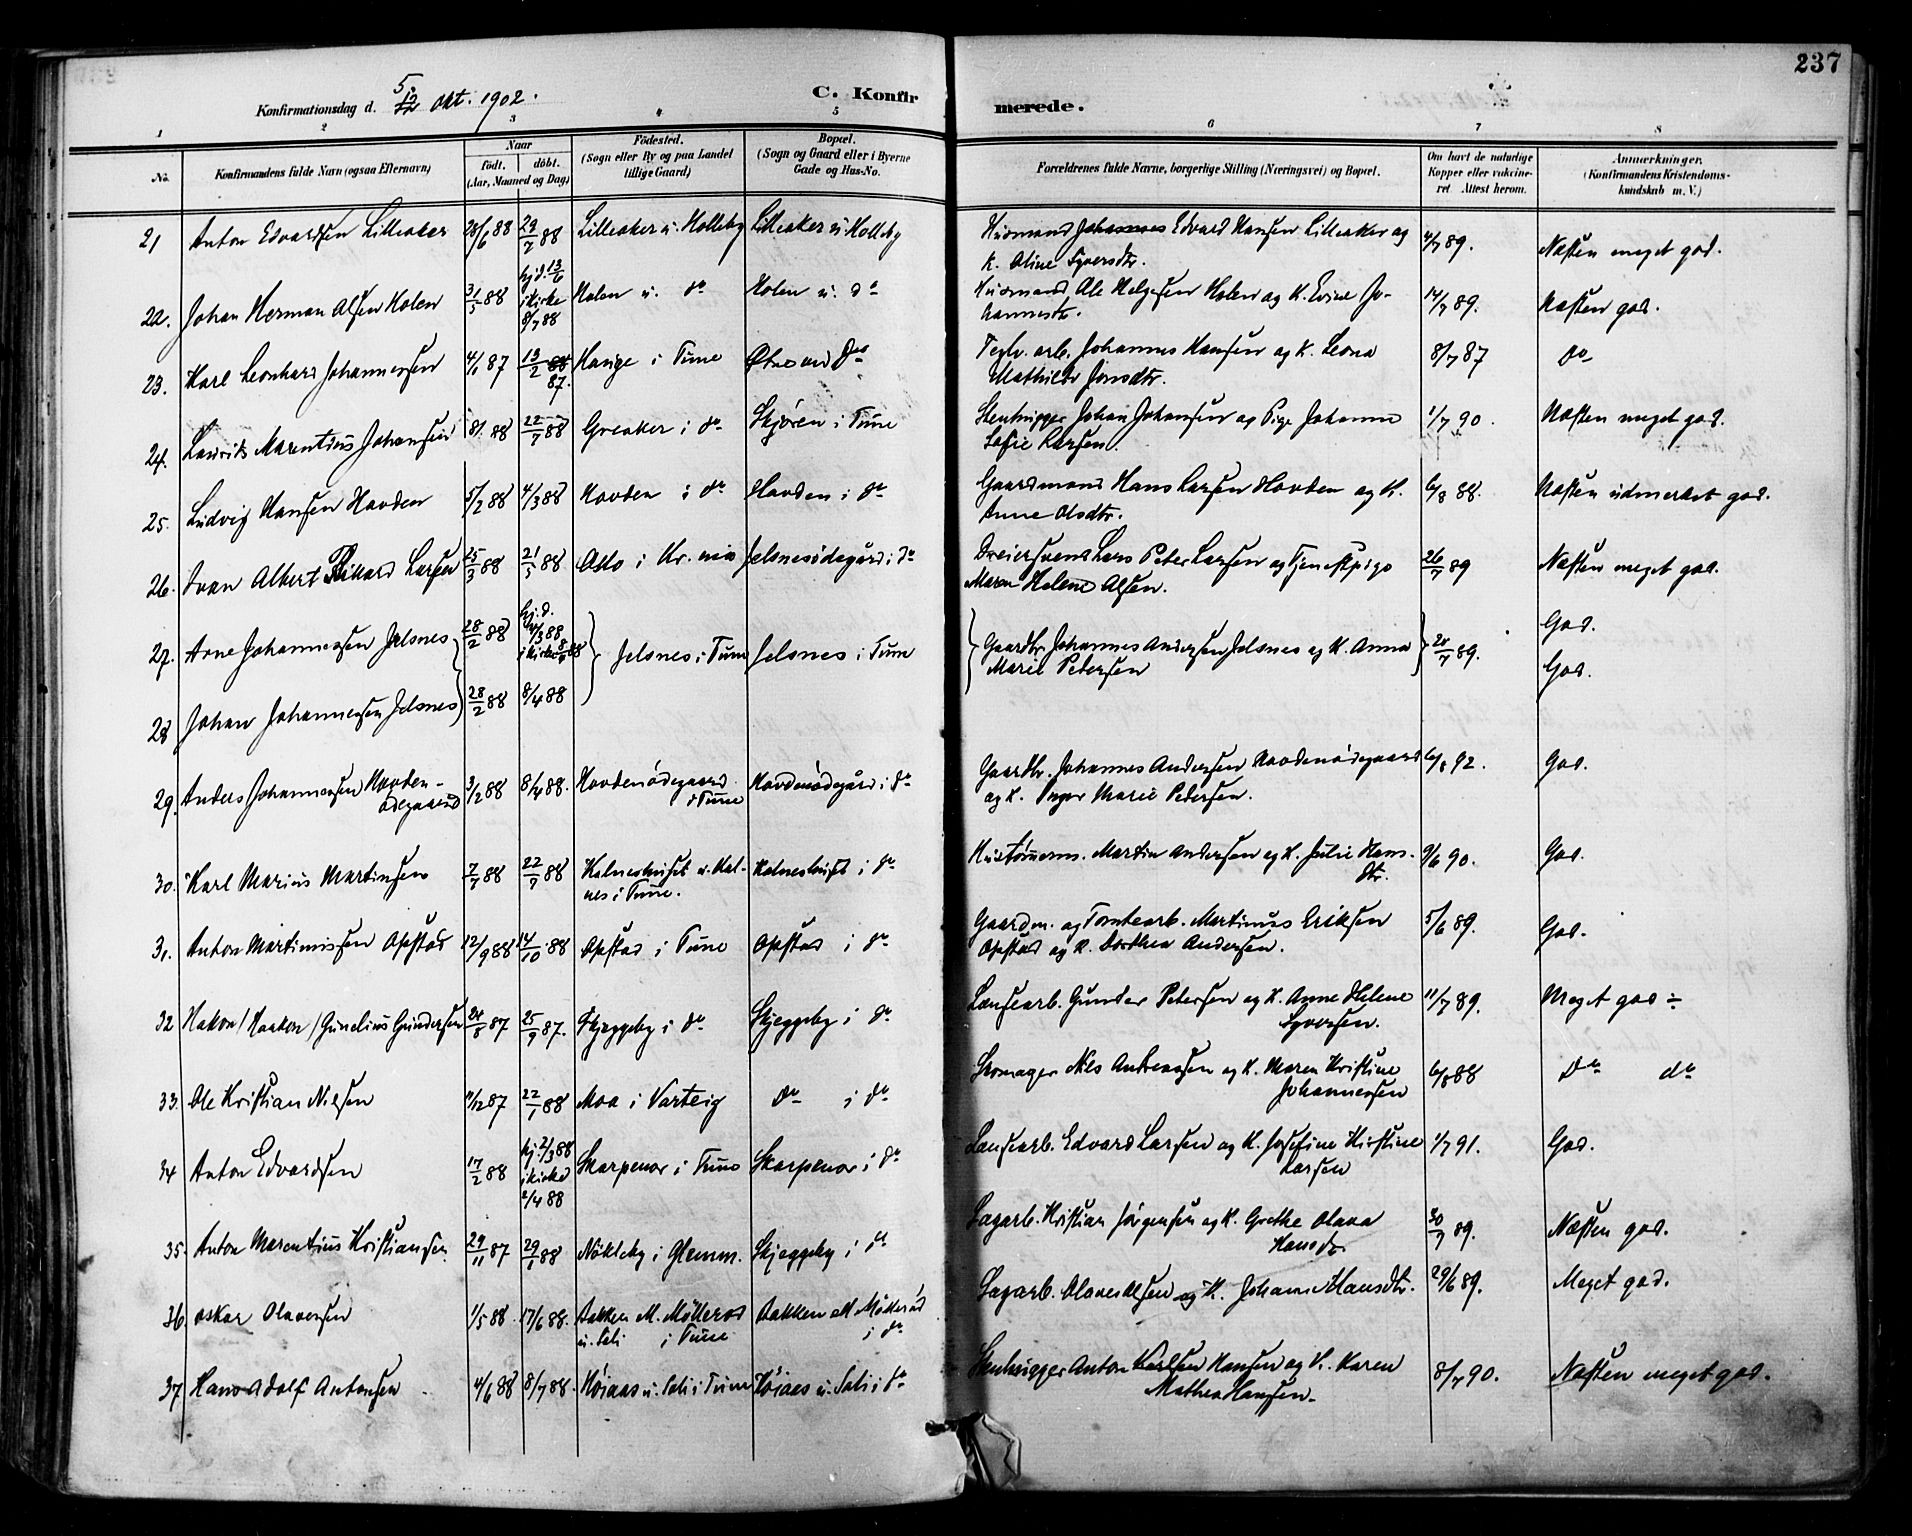 237
Konfirmationsdag d. 5/12 Okt. 1902.
C. Konfirmerede.
1 2 3 4 5 6 7 8
No.
Konfirmandens fulde Navn (ogsaa Efternavn)
Naar
födt. döbt.
(Aar, Maaned og Dag)
Födested.
(Sogn eller By og paa Landet
tillige Gaard)
Bopæl.
(Sogn og Gaard eller i Byerne
Gade og Hus-No.
Forældrenes fulde Navne, borgerlige Stilling (Næringsvei) og Bopæl.
Om havt de naturlige
Kopper eller vakcineret. Attest herom.
Anmærkninger.
(Konfirmandens Kristendomskundskab m. V.)
21 Anton Edvardsen Lilleaker 28/6 88 29/7 88 Lilleaker u. Holleby Lilleaker u. Holleby Husmand Johannes Edvard Hansen Lilleaker og 4/7 89. Næsten meget god.
K. Oline Syversdtr.
22. Johan Herman Olsen Holen 31/5 88 hj.d. 13/6 i kirke 8/7 88 Holen u. do Holen u. do Husmand Ole Helgesen Holen og K. Evine Jo- 14/7 89. Næsten god.
hannesdtr.
23. Karl Leonhard Johannessen 4/1 87 13/2 88 87. Hauge i Tune do Teglv. arb. Johannes Hansen og K. Leona 8/7 87 do
Mathilde Jonsdtr.
24. Laurits Marentius Johansen 88 22/7 88 Greaker i do Skjören i Tune Stenhugger Johan Johansen og Pige Johanne 1/7 90. Næsten meget god.
Sofie Larsen.
25. Ludvig Hansen Hovden 5/2 88 4/3 88 Hovden i do Hovden i do Gaardmand Hans Larsen Hovden og K. 6/8 88. Næsten udmerket god.
Anne Olsdtr.
26. Ivan Albert Rikard Larsen 25/3 88 21/5 88 Oslo i Kr.nia Jelsnesødegård i do Dreiersvend Lars Peter Larsen og Tjenestpige 26/7 89 Næsten meget god.
Maren Helene Olsen.
27. Arne Johannessen Jelsnes 28/2 88 hj.d. 4/3 88 i kirke 8/4 88 Jelsnes i Tune Jelsnes i Tune Gaardbr. Johannes Andersen Jelsnes og K. Anna 20/7 89. God.
Marie Petersen
28 Johan Johannessen Jelsnes 28/2 88 8/4 88 God.
29. Anders Johannessen Hovden- 3/2 88 8/4 88. Hovdenödegaard Hovdenödegård i do Gaardbr. Johannes Andersen Hovdenödegaard 6/8 92. God.
ödegaard i Tune og K. Inger Marie Petersen.
30. Karl Marius Martinsen 7/7 88 22/7 88 Kalneshuset u. Kal- Kalneshuset i do Hustömerm. Martin Andersen og K. Julie Hans- 9/6 90. God.
nes i Tune. dtr.
31. Anton Martinissen Opstad 12/9 88 14/10 88 Opstad i Tune Opstad i do Gaardm. og Tomtearb. Martinius Eriksen 5/6 89. God.
Opstad og K. Dorthea Andersen.
32 Hakon /Haakon/ Gunelius Gundersen 24/8 87 25/9 87. Skjeggeby i do Skjeggeby i do Lænsearb. Gunder Petersen og K. Anne Helene 11/7 89. Meget god ÷
Syversen.
33. Ole Kristian Nilsen 11/12 87 22/1 88 Moa i Varteig do i do Skomager Nils Andreassen og K. Maren Kristine 6/8 88 do do
Johannessen
34 Anton Edvardsen 17/2 88 hj. 2/3 88 i kirke 2/4 88 Skarpenor i Tune Skarpenor i do Lænsearb. Edvard Larsen og K. Josefine Kirstine 1/7 91. God.
Larsen
35. Anton Marentius Kristiansen 29/11 87 29/1 88 Nökleby i Glemm. Skjeggeby i do Sagarb. Kristian Jörgensen og K. Grethe Olava 30/7 89. Næsten god.
Hansdr.
36 Oskar Olavesen 1/5 88. 17/6 88. Bakken M. Mölleröd Bakken M. Mölleröd Sagarb. Olaves Olsen og K. Johanne Hansdtr. 29/6 89. Meget god.
u. Soli i Tune i do
37 Hans Adolf Antonsen 4/6 88 8/7 88. Höiaas u. Soli i Tune Höiaas u. Soli i do Stenhugger Anton Karlsen Hansen og K. Karen 8/7 90. Næsten meget god.
Mathea Hansen.